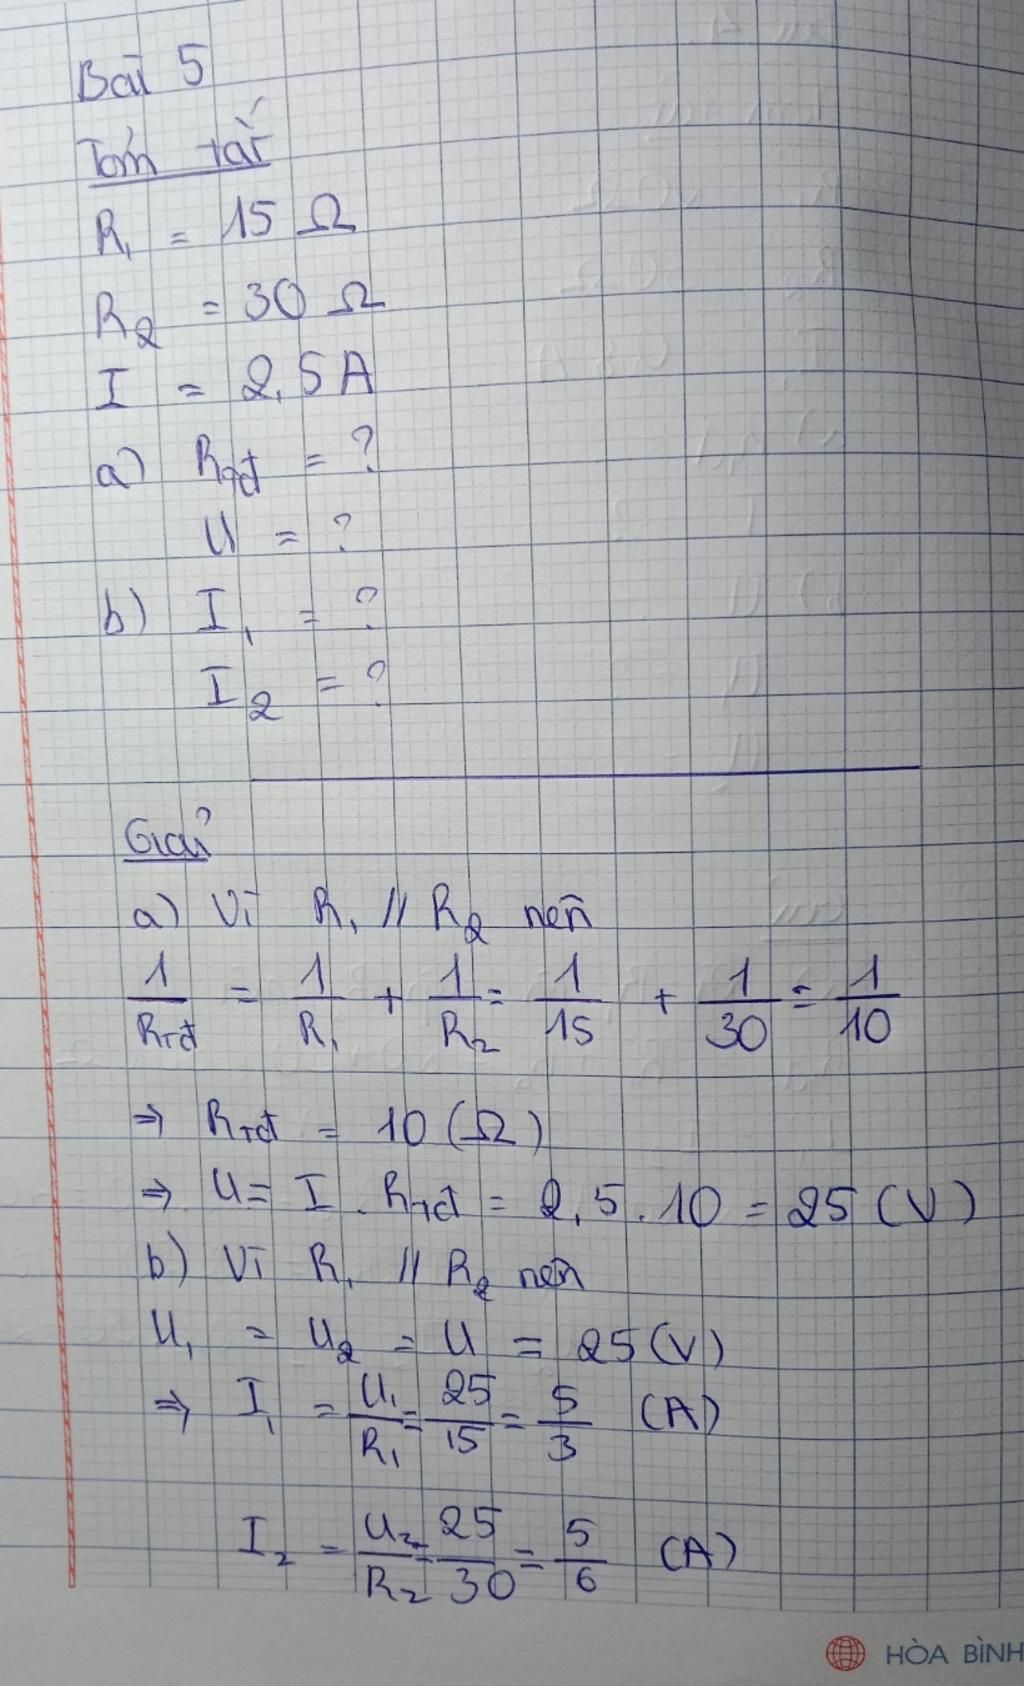 Bài 5
Tóm tắt
R₁ = 15 Ω
R₂ = 30 Ω
I = 2,5 A
a) Rtđ = ?
U = ?
b) I₁ = ?
I₂ = ?
Giải
a) Vì R₁ // R₂ nên
1/Rtđ = 1/R₁ + 1/R₂ = 1/15 + 1/30 = 1/10
⇒ Rtđ = 10 (Ω)
⇒ U = I . Rtđ = 2,5 . 10 = 25 (V)
b) Vì R₁ // R₂ nên
U₁ = U₂ = U = 25 (V)
⇒ I₁ = U₁/R₁ = 25/15 = 5/3 (A)
I₂ = U₂/R₂ = 25/30 = 5/6 (A)
HÒA BÌNH